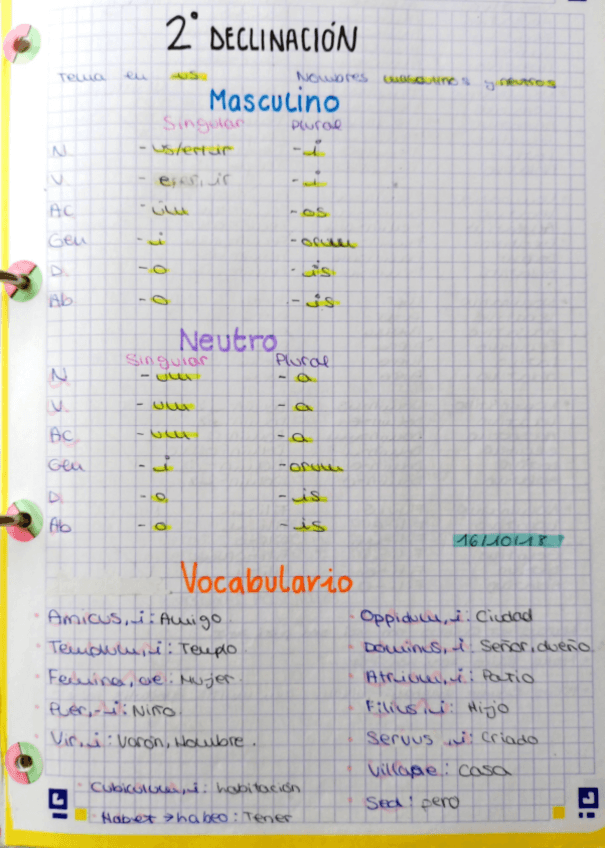 2° DECLINACIÓN
Tema en us Nombres masculinos y neutros
Masculino
Singular Plural
N. -us/er/ir -i
V. -e,er,ir -i
AC -um -os
Gen -i -orum
D. -o -is
Ab -o -is
Neutro
Singular Plural
N. -um -a
V. -um -a
AC -um -a
Gen -i -orum
D. -o -is
Ab -o -is
16/10/18
Vocabulario
· Amicus, -i: Amigo
· Templum, i: Templo
· Femina, ae: Mujer.
· Puer, -i: Niño.
· Vir, i: Varón, Hombre.
· Cubiculum, i: habitación
· Habet → habeo: Tener
· Oppidum, i: Ciudad
· Dominus, i: Señor, dueño.
· Atrium, i: Patio
· Filius, i: Hijo
· Servus, i: Criado
· Villa,ae: Casa
· Sed: pero